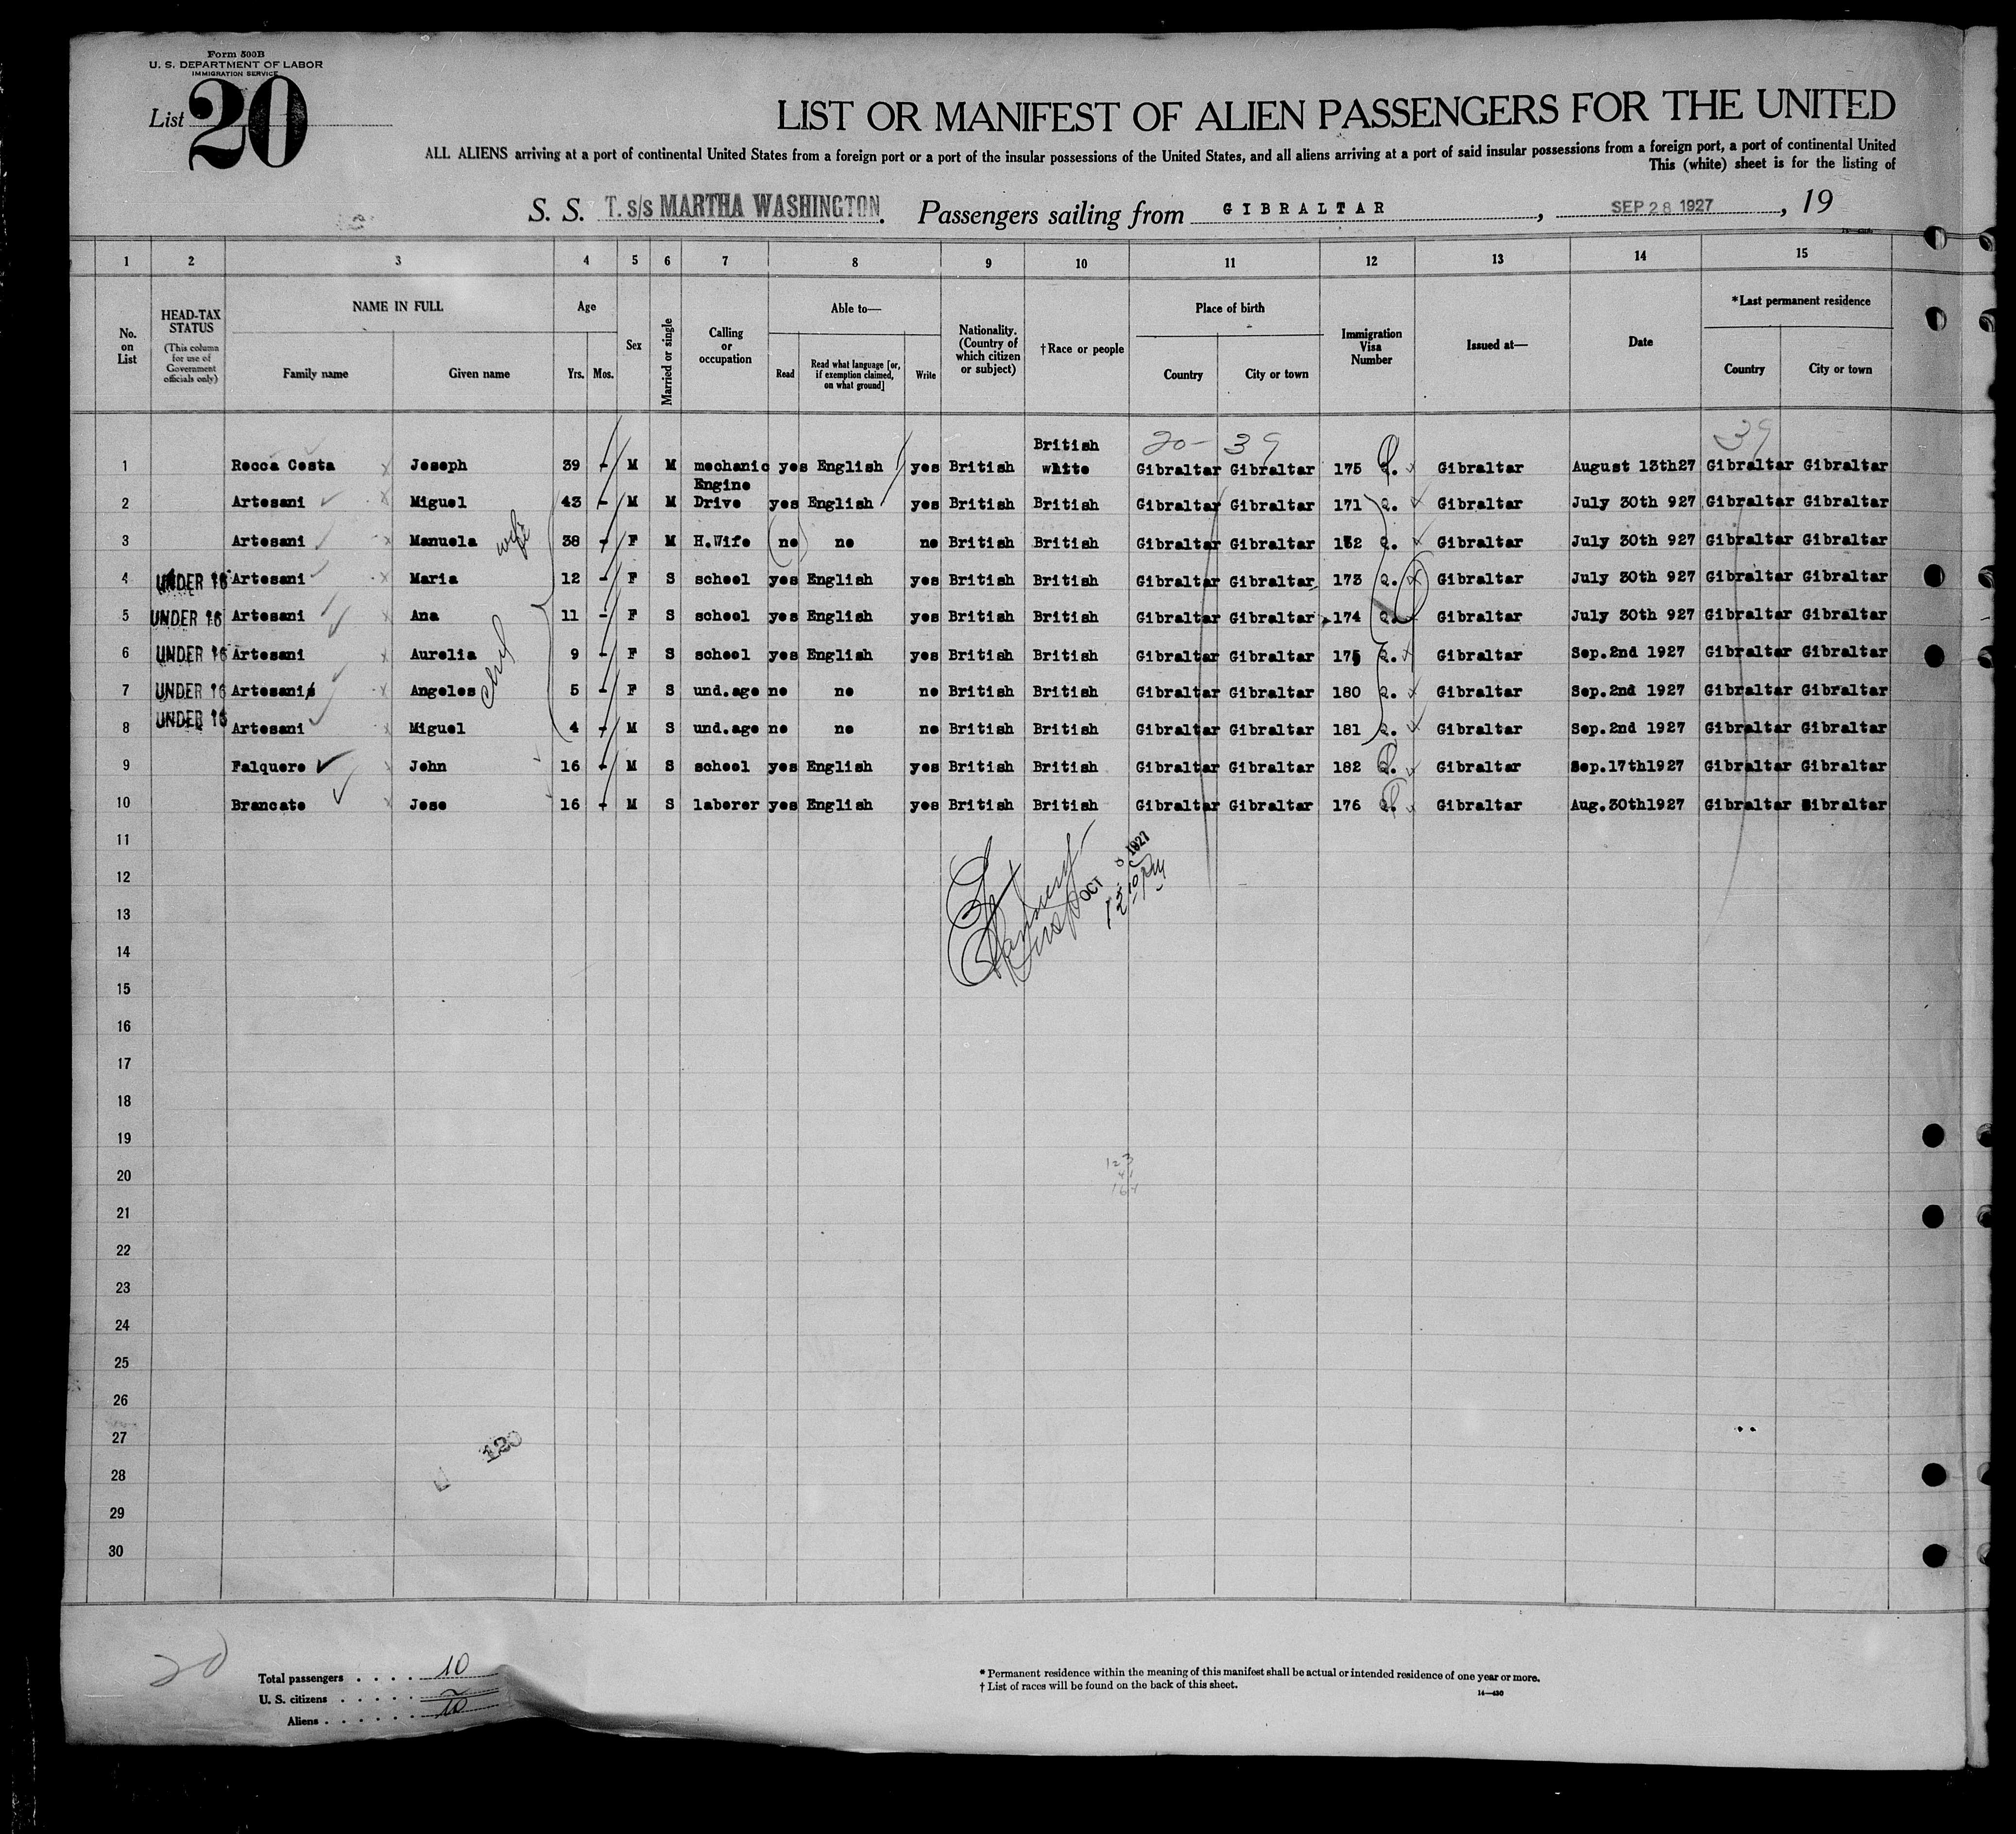 Form 500B
U. S. DEPARTMENT OF LABOR
IMMIGRATION SERVICE
List 20
LIST OR MANIFEST OF ALIEN PASSENGERS FOR THE UNITED
ALL ALIENS arriving at a port of continental United States from a foreign port or a port of the insular possessions of the United States, and all aliens arriving at a port of said insular possessions from a foreign port, a port of continental United
This (white) sheet is for the listing of
S. S. T. s/s MARTHA WASHINGTON. Passengers sailing from GIBRALTAR, SEP 28 1927, 19
1 2 3 4 5 6 7 8 9 10 11 12 13 14 15
No. on List
HEAD-TAX STATUS
(This column for use of Government officials only)
NAME IN FULL
Family name Given name
Age
Yrs. Mos.
Sex
Married or single
Calling or occupation
Able to—
Read
Read what language [or, if exemption claimed, on what ground]
Write
Nationality. (Country of which citizen or subject)
†Race or people
Place of birth
Country City or town
Immigration Visa Number
Issued at—
Date
*Last permanent residence
Country City or town
20- 39 39
1 Rocca Costa Joseph 39 - M M mechanic yes English yes British British white Gibraltar Gibraltar 175 Gibraltar August 13th27 Gibraltar Gibraltar
2 Artesani Miguel 43 - M M Engine Drive yes English yes British British Gibraltar Gibraltar 171 Gibraltar July 30th 927 Gibraltar Gibraltar
3 Artesani Manuela wife 38 - F M H.Wife no no no British British Gibraltar Gibraltar Gibraltar July 30th 927 Gibraltar Gibraltar
4 UNDER 16 Artesani Maria 12 - F S school yes English yes British British Gibraltar Gibraltar 173 Gibraltar July 30th 927 Gibraltar Gibraltar
5 UNDER 16 Artesani Ana 11 - F S school yes English yes British British Gibraltar Gibraltar 174 Gibraltar July 30th 927 Gibraltar Gibraltar
6 UNDER 16 Artesani Aurelia 9 - F S school yes English yes British British Gibraltar Gibraltar Gibraltar Sep.2nd 1927 Gibraltar Gibraltar
7 UNDER 16 Artesani Angeles 5 - F S und.age no no no British British Gibraltar Gibraltar 180 Gibraltar Sep.2nd 1927 Gibraltar Gibraltar
8 UNDER 16 Artesani Miguel 4 - M S und.age no no no British British Gibraltar Gibraltar 181 Gibraltar Sep.2nd 1927 Gibraltar Gibraltar
9 Falquero John 16 - M S school yes English yes British British Gibraltar Gibraltar 182 Gibraltar Sep.17th1927 Gibraltar Gibraltar
10 Brancato Jose 16 - M S laborer yes English yes British British Gibraltar Gibraltar 176 Gibraltar Aug.30th1927 Gibraltar Gibraltar
11
12
OCT 1927
13
14
15
16
17
18
19
20
123
41
164
21
22
23
24
25
26
27
120
28
29
30
20
Total passengers . . . . 10
U. S. citizens . . . . .
Aliens . . . . . . 10
* Permanent residence within the meaning of this manifest shall be actual or intended residence of one year or more.
† List of races will be found on the back of this sheet.
14—430